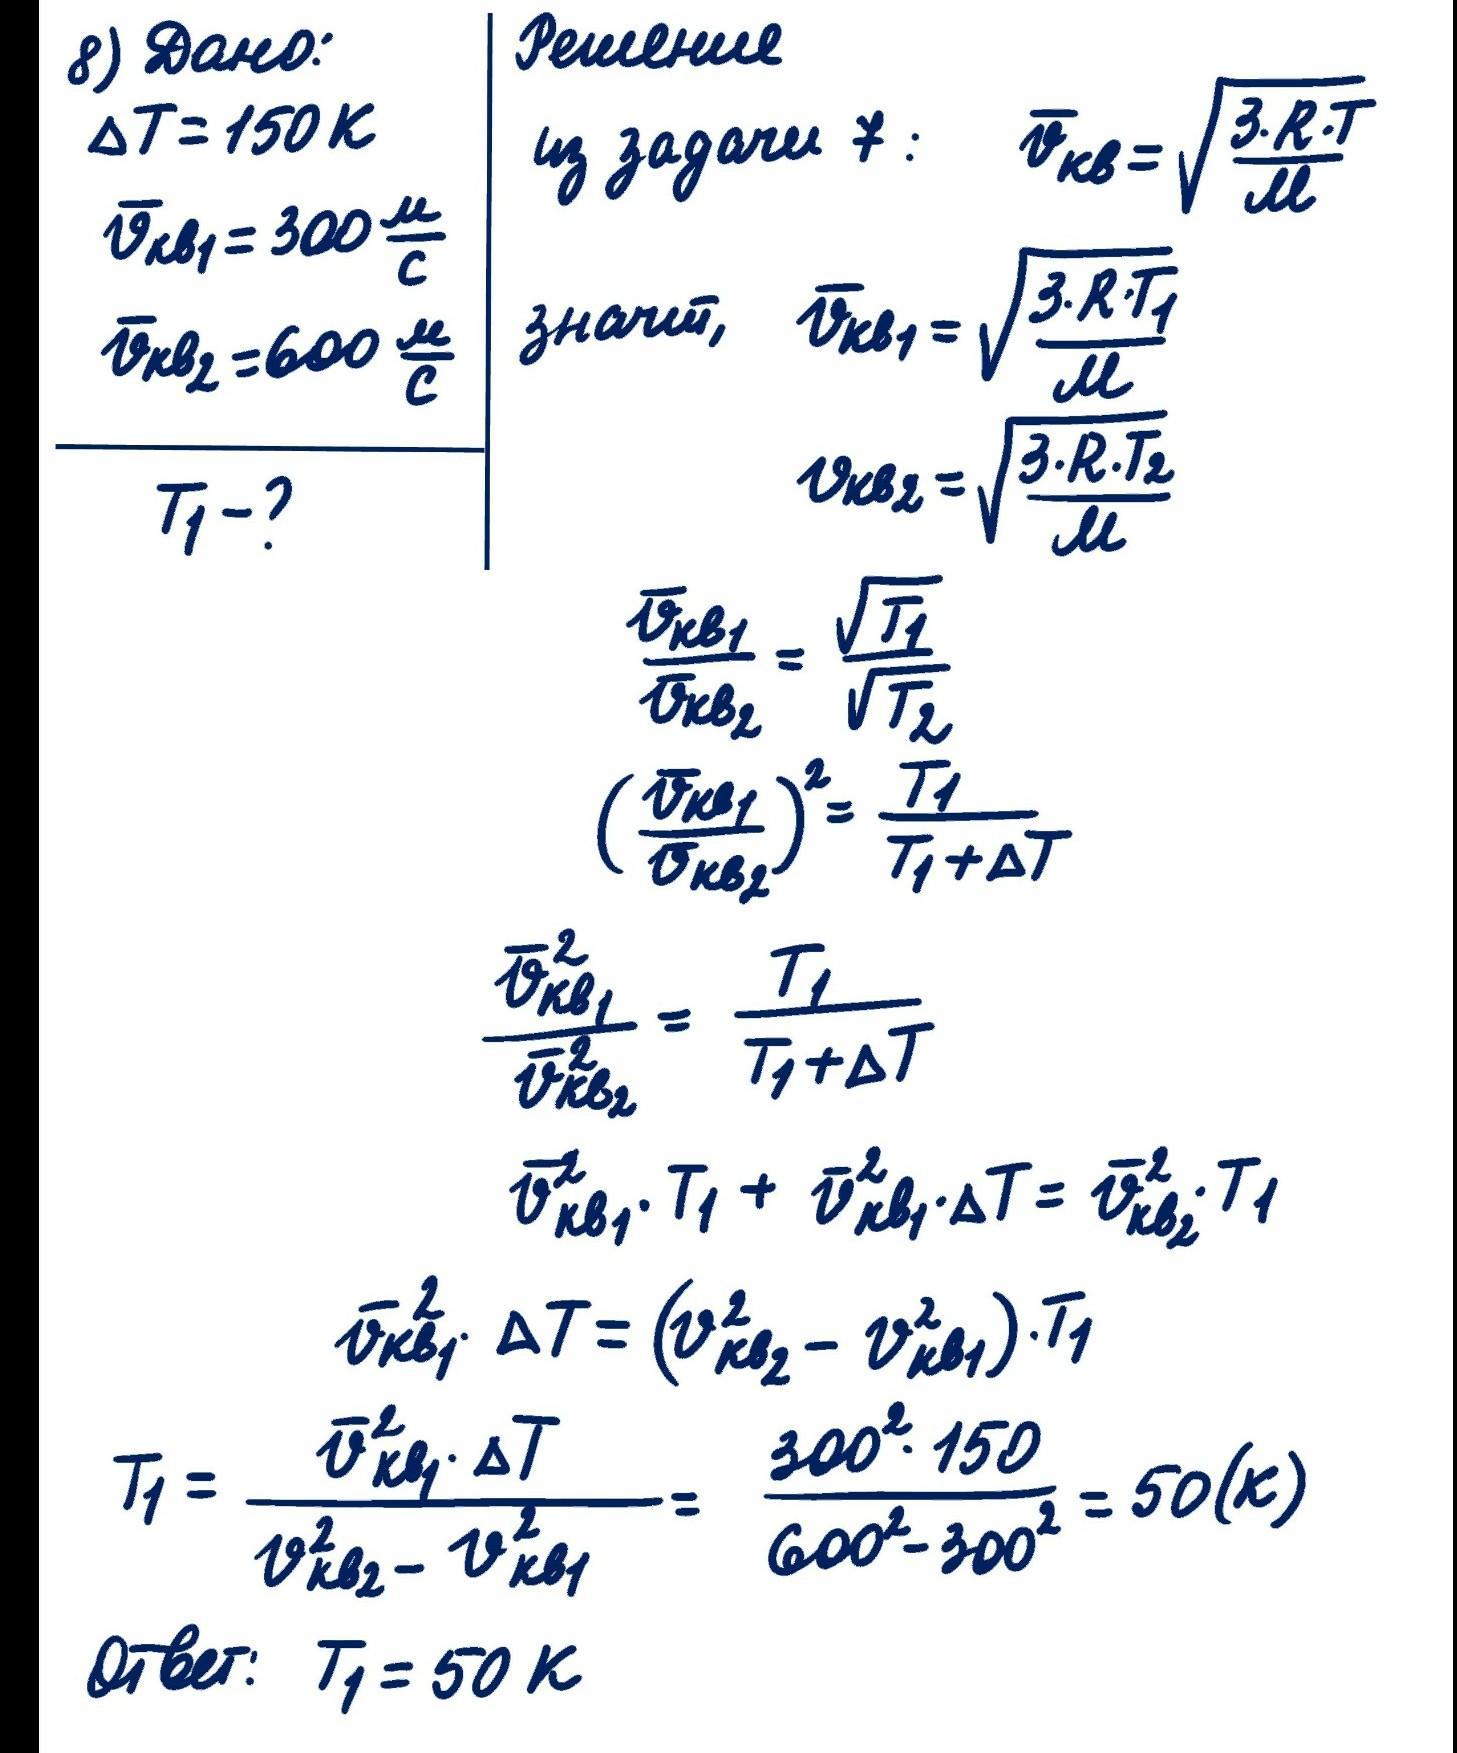 8) Дано:
ΔT = 150 К
v̄кв₁ = 300 м/с
v̄кв₂ = 600 м/с
T₁ - ?
Решение
из задачи 7: v̄кв = √(3·R·T/M)
значит, v̄кв₁ = √(3·R·T₁/M)
vкв₂ = √(3·R·T₂/M)
v̄кв₁/v̄кв₂ = √T₁/√T₂
(v̄кв₁/v̄кв₂)² = T₁/(T₁+ΔT)
v̄²кв₁/v̄²кв₂ = T₁/(T₁+ΔT)
v̄²кв₁·T₁ + v̄²кв₁·ΔT = v̄²кв₂·T₁
v̄²кв₁·ΔT = (v²кв₂ - v²кв₁)·T₁
T₁ = v̄²кв₁·ΔT/(v²кв₂ - v²кв₁) = 300²·150/(600²-300²) = 50(К)
Ответ: T₁ = 50 К